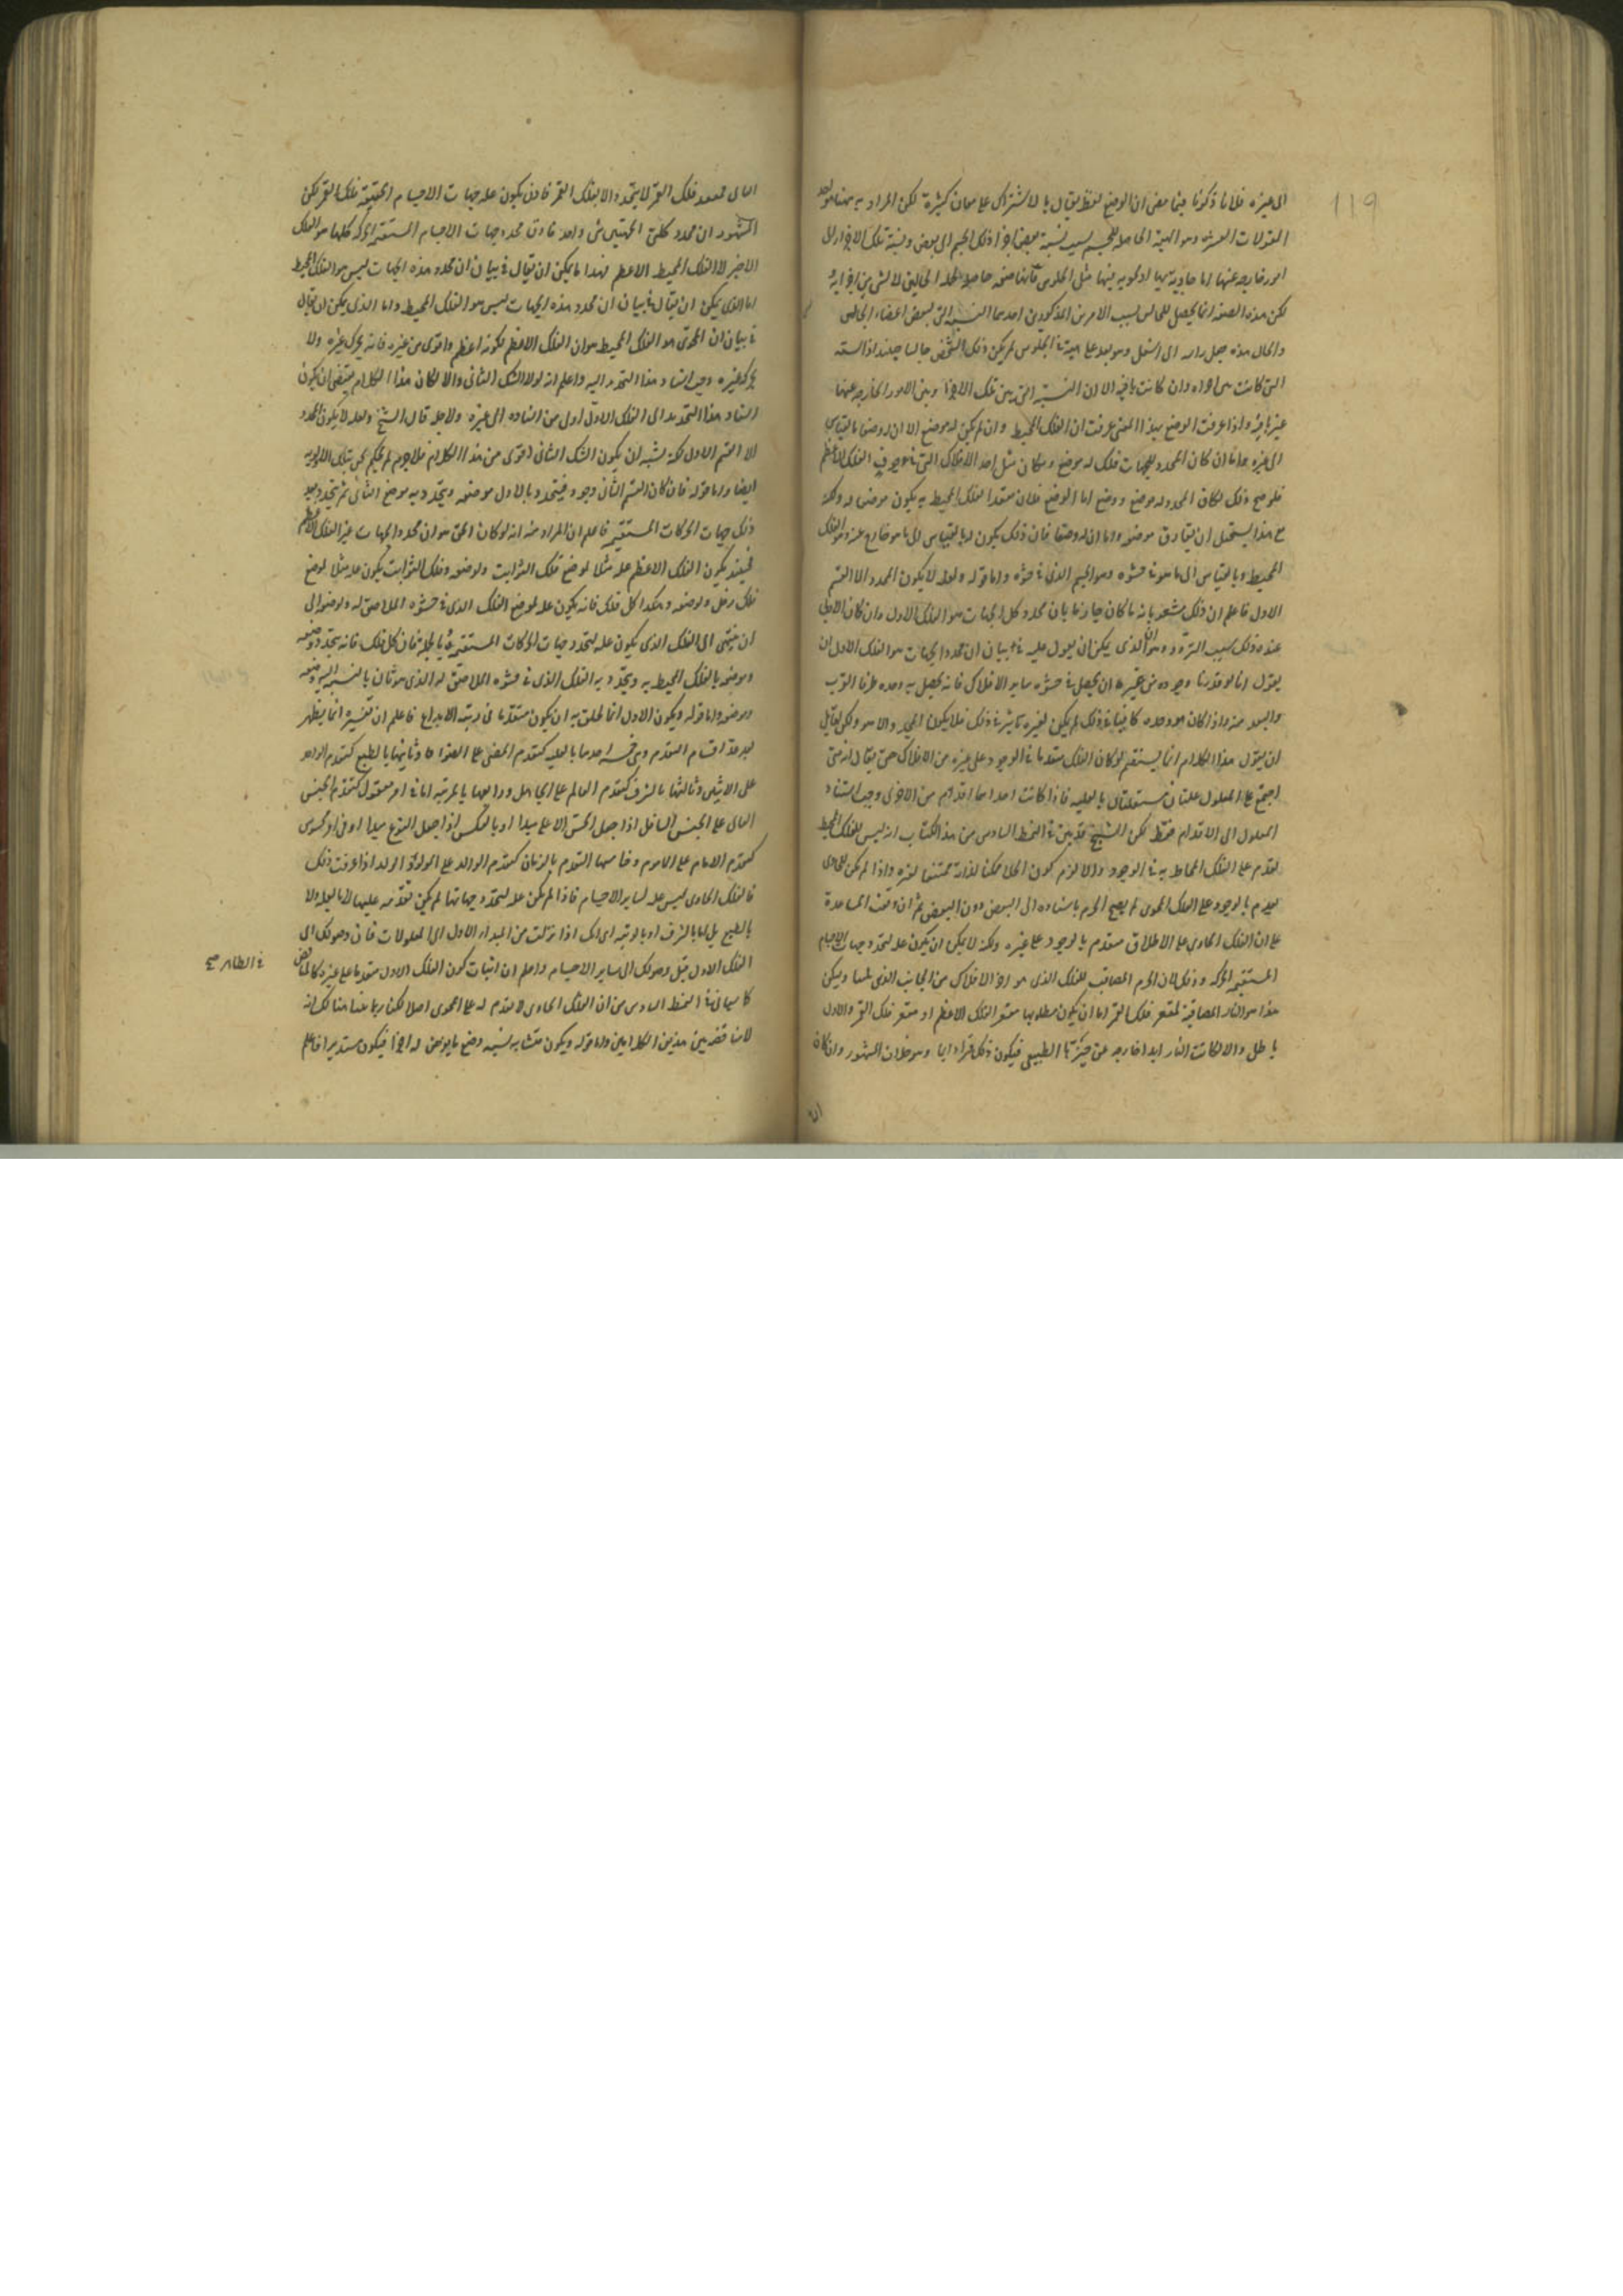 119
الى غيره فلانا ذكرنا فيما مضى ان الوضع لفظ يقال بالاشتراك على معان كثيرة لكن المراد به ههنا هو احد
المقولات العشرة وهو الهيئة الحاصلة للجسم بسبب نسبة بعض اجزا ذلك الجسم الى بعض ونسبة تلك الاجزا الى
امور خارجة عنها اما حاوية لها او محوية فيها مثل الجلوس فانها صفة حاصلة لجملة الجالس لا لشى من اجزائه
لكن هذه الصفة انما تحصل للجالس بسبب الامرين المذكورين احدهما النسبة التى لبعض اعضاء الجالس
والحال هذه جعل راسه الى اسفل وهو بعد على هيئة الجلوس لم يكن ذلك الشخص جالسا حينئذ اذ النسبة
التى كانت بين اجزاه وان كانت باقية الا ان النسبة التى بين تلك الاجزا وبين الامور الخارجة عنها
غير باقية واذا عرفت الوضع بهذا المعنى عرفت ان الفلك المحيط وان لم يكن له موضع الا ان له وضعا بالقياس
الى غيره واما ان كان المحدد للجهات فلك له موضع ومكان مثل احد الافلاك التى فى جوف الفلك الاعظم
فلوضح ذلك لكان المحدد له موضع ووضع اما الوضع فلان مقعر الفلك المحيط به يكون موضعا له ولكنه
مع هذا يستحيل ان يفارق موضعه واما ان له وضعا فان ذلك يكون له بالقياس الى ما هو خارج عنه وهو الفلك
المحيط وبالقياس الى ما هو فى حشوه وهو الجسم الذى فى حشوه واما قوله ولعله لا يكون المحدد الا القسم
الاول فاعلم ان ذلك مشعر بانه ما كان جازما بان محدد كل الجهات هو الفلك الاول وان كان الاولى
عنده ذلك بسبب التردد وهو ان الذى يمكن ان يعول عليه فى بيان ان محدد الجهات هو الفلك الاول ان
يقول انا لو قدرنا وجوده من غير ان يحصل فى حشوه ساير الافلاك فانه يحصل به وحده طرفا القرب
والبعد منه واذا كان هو وحده كافيا فى ذلك لم يكن لغيره تاثير فى ذلك فلا يكون المحدد الا هو ولكن لقائل
ان يقول هذا الكلام انما يستقيم لو كان الفلك متقدما فى الوجود على غيره من الافلاك حتى يقال انه متى
اجتمع على المعلول علتان مستقلتان بالعلية فاذا كانت احداهما اقدم من الاخرى وجب استناد
المعلول الى الاقدم فقط لكن الشيخ قد بين فى النمط السادس من هذا الكتاب انه ليس للفلك المحيط
تقدم على الفلك المحاط به فى الوجود والا لزم كون الخلا ممكنا لذاته ممتنعا لغيره واذا لم يكن للحاوى
تقدم بالوجود على الفلك المحوى لم يصح الجزم باستناده الى البعض دون البعض ثم ان وقعت المساعدة
على ان الفلك الحاوى على الاطلاق متقدم بالوجود على غيره ولكنه لا يمكن ان يكون علة لتحدد جهات الاجسام
المستقيمة الحركة وذلك لان الجرم المصاقب للفلك الذى هو اخر الافلاك من الجانب الذى يلينا وليكن
هذا هو النار المصاقبة لمقعر فلك القمر اما ان يكون مطلوبها مقعر الفلك الاعظم او مقعر فلك القمر والاول
باطل والا لكانت النار ابدا خارجة عن حيزها الطبيعى فيكون ذلك قسرا دايما وهو خلاف المشهور وان كان
الثانى فمقعر فلك القمر لا يتحدد الا بفلك القمر فاذن يكون علة جهات الاجسام الحقيقة فلك القمر لكن
المشهور ان محدد كلتى الجهتين شى واحد فاذن محدد جهات الاجسام المستقيمة الحركة كلها هو الفلك
الاخير لا الفلك المحيط الاعظم فهذا ما يمكن ان يقال فى بيان ان محدد هذه الجهات ليس هو الفلك المحيط
اما الذى يمكن ان يقال فى بيان ان محدد هذه الجهات ليس هو الفلك المحيط واما الذى يمكن ان يقال
فى بيان ان المحدد هو الفلك المحيط هو ان الفلك الاعظم لكونه اعظم واقوى من غيره فانه يحرك غيره ولا
يحركه غيره وجب اسناد هذا التحديد اليه واعلم انه لولا الشك الثانى والا لكان هذا الكلام يقتضى ان يكون
اسناد هذا التحديد الى الفلك الاول اولى من اسناده الى غيره ولاجله قال الشيخ ولعله لا يكون المحدد
الا القسم الاول لكنه يشبه ان يكون الشك الثانى اقوى من هذا الكلام فلا جرم لم يحكم بتلك الاولوية
ايضا واما قوله فان كان القسم الثانى وجود فيتحدد بالاول موضعه ويتحدد به موضع الثانى ثم يتحدد بعد
ذلك جهات الحركات المستقيمة فاعلم ان المراد منه انه لو كان الحق هو ان محدد الجهات غير الفلك الاعظم
فحينئذ يكون الفلك الاعظم علة مثلا لوضع فلك الثوابت ولموضعه وفلك الثوابت يكون علة مثلا لوضع
فلك زحل ولموضعه وهكذا كل فلك فانه يكون علة لموضع الفلك الذى فى حشوه الملاصق له ولوضعه الى
ان ينتهى الى الفلك الذى يكون علة لتحدد جهات الحركات المستقيمة وبالجملة فان كل فلك فانه يتحدد وضعه
وموضعه بالفلك المحيط به ويتحدد به الفلك الذى فى حشوه الملاصق له الذى هو ثان بالنسبة اليه وضعه
وموضعه واما قوله ويكون الاول انما يخلق به ان يكون متقدما فى رتبة الابداع فاعلم ان تفسيره انما يظهر
بعد عد اقسام التقدم وهى خمسة احدها بالعلية كتقدم المضى على الضوء وثانيها بالطبع كتقدم الواحد
على الاثنين وثالثها بالشرف كتقدم العالم على الجاهل ورابعها بالمرتبة اما فى امر معقول كتقدم الجنس
العالى على الجنس السافل اذا جعل الجنس الاعلى مبدا او بالعكس اذا جعل النوع مبدا او فى امر محسوس
كتقدم الامام على الماموم وخامسها التقدم بالزمان كتقدم الوالد على المولود الولد اذا عرفت ذلك
فالفلك الحاوى ليس علة لساير الاجسام فاذا لم يكن علة لتحدد جهاتها لم يكن تقدمه عليها لا بالعلية ولا
بالطبع بل اما بالشرف او بالرتبة اى انك اذا نزلت من المبداء الاول الى المعلولات فان وصولك الى
الفلك الاول قبل وصولك الى ساير الاجسام واعلم ان اثبات كون الفلك الاول متقدما على غيره كالمناقض
فى الظاهر صح
لما سياتى فى النمط السادس من ان الفلك الحاوى لا تقدم له على المحوى اصلا لكن ربما بينا هناك انه
لا مناقضة بين هذين الكلامين واما قوله ويكون متشابه نسبة وضع ما يفرض له اجزا فيكون مستديرا فاعلم